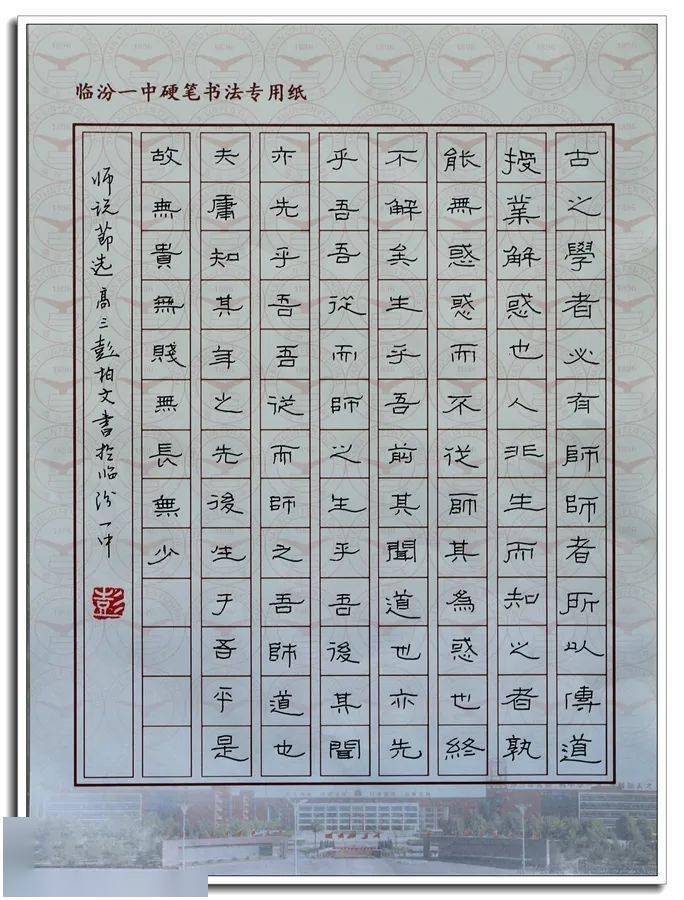 临汾一中硬笔书法专用纸
古之學者必有師師者所以傳道
授業解惑也人非生而知之者孰
能無惑惑而不從師其為惑也終
不解矣生乎吾前其聞道也亦先
乎吾吾從而師之生乎吾後其聞
亦先乎吾吾從而師之吾師道也
夫庸知其年之先後生于吾乎是
故無貴無賤無長無少
师说节选高三彭柏文書於临汾一中
彭
1896